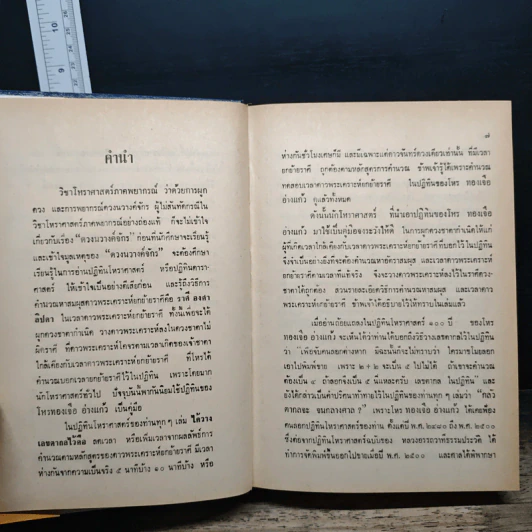 10
9
คำนำ
วิชาโหราศาสตร์ภาคพยากรณ์ ว่าด้วยการผูก
ดวง และการพยากรณ์ดวงนวางค์จักร ผู้ไม่สันทัดกรณีใน
วิชาโหราศาสตร์ภาคพยากรณ์อย่างถ่องแท้ ก็จะไม่เข้าใจ
เกี่ยวกับเรื่อง "ดวงนวางค์จักร" ก่อนที่นักศึกษาจะเรียนรู้
และเข้าใจมูลเหตุของ "ดวงนวางค์จักร" จะต้องศึกษา
เรียนรู้ในการอ่านปฏิทินโหราศาสตร์ หรือปฏิทินดารา-
ศาสตร์ ให้เข้าใจเป็นอย่างดีเสียก่อน และรู้ถึงวิธีการ
คำนวณหาสมผุสดาวพระเคราะห์คือ ราศี องศา
ลิปดา ในเวลาดาวพระเคราะห์ยกย้ายราศี ทั้งนี้เพื่อจะได้
ผูกดวงชาตากำเนิด วางดาวพระเคราะห์ลงในดวงชาตาไม่
ผิดราศี ที่ดาวพระเคราะห์โคจรตามเวลาเกิดของเจ้าชาตา
ใกล้เคียงกับเวลาดาวพระเคราะห์ยกย้ายราศี ที่โหรได้
คำนวณบอกเวลายกย้ายราศีไว้ในปฏิทิน เพราะโหรและ
นักโหราศาสตร์ทั่วไป ปัจจุบันนี้พากันนิยมใช้ปฏิทินของ
โหรทองเจือ อ่างแก้ว เป็นคู่มือ
ในปฏิทินโหราศาสตร์ของท่านทุก ๆ เล่ม ได้วาง
เลขตากลไว้คือ ลดเวลา หรือเพิ่มเวลาจากผลลัพธ์การ
คำนวณตามหลักสูตรของดาวพระเคราะห์ยกย้ายราศี มีเวลา
ห่างกันจากความเป็นจริง ๕ นาทีบ้าง ๑๐ นาทีบ้าง หรือ
๗
ห่างกันชั่วโมงเศษก็มี และมีเฉพาะแต่ดาวจันทร์ดวงเดียวเท่านั้น ที่มีเวลา
ยกย้ายราศี ถูกต้องตามหลักสูตรการคำนวณ ข้าพเจ้ารู้ได้เพราะคำนวณ
ทดสอบเวลาดาวพระเคราะห์ยกย้ายราศี ในปฏิทินของโหร ทองเจือ
อ่างแก้ว ดูแล้วทั้งหมด
ดังนั้นนักโหราศาสตร์ ที่นำเอาปฏิทินของโหร ทองเจือ
อ่างแก้ว มาใช้เป็นคู่มือจงระวังให้ดี ในการผูกดวงชาตากำเนิดให้แก่
ผู้ที่เกิดเวลาใกล้เคียงกับเวลาดาวพระเคราะห์ยกย้ายราศีที่บอกไว้ในปฏิทิน
จึงจำเป็นอย่างยิ่งที่จะต้องคำนวณหาอัตราสมผุส และเวลาดาวพระเคราะห์
ยกย้ายราศีตามเวลาที่แท้จริง จึงจะวางดาวพระเคราะห์ลงไว้ในราศีดวง-
ชาตาได้ถูกต้อง ส่วนรายละเอียดวิธีการคำนวณหาสมผุส และเวลาดาว
พระเคราะห์ยกย้ายราศี ข้าพเจ้าได้อธิบายไว้ให้ทราบในเล่มแล้ว
เมื่ออ่านถ้อยแถลงในปฏิทินโหราศาสตร์ ๑๐๐ ปี ของโหร
ทองเจือ อ่างแก้ว จะเห็นได้ว่าท่านได้บอกถึงวิธีวางเลขตากลไว้ในปฏิทิน
ว่า "เพื่อจับคนลอกตำหาก มิฉะนั้นก็จะไม่ทราบว่า ใครมาขโมยลอก
เอาไปพิมพ์ขาย เพราะ ๒ + ๒ จะเป็น ๔ ไปไม่ได้ ถ้าเราจะคำนวณ
ต้องเป็น ๔ ถ้าลอกจึงเป็น ๕ นั่นแหละครับ เลขตากล ในปฏิทิน และ
ยังได้กล่าวเป็นคำปริศนาท้าทายไว้ในปฏิทินของท่านทุก ๆ เล่มว่า "กลัว
ตากลฉะ จนกลางศาล ?" เพราะโหร ทองเจือ อ่างแก้ว ได้เคยฟ้อง
คนลอกปฏิทินโหราศาสตร์ของท่าน ตั้งแต่ปี พ.ศ. ๒๔๘๐ ถึง พ.ศ. ๒๕๐๐
ซึ่งคัดจากปฏิทินโหราศาสตร์ฉบับของ หลวงอรรถวาทีธรรมประวัติ ได้
ทำการจัดพิมพ์ขึ้นออกไปขายเมื่อปี พ.ศ. ๒๕๐๐ และศาลได้พิพากษา